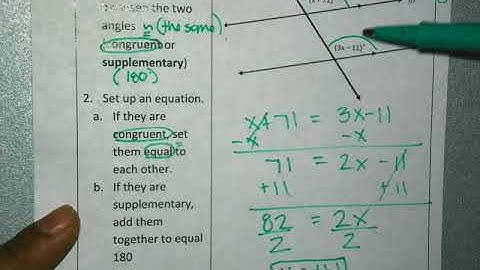 between the two
angles = (the same)
(congruent or
supplementary)
(180°)
2. Set up an equation.
a. If they are
congruent, set
them equal to
each other.
b. If they are
supplementary,
add them
together to equal
180
(3x - 11)°
x+71 = 3x-11
-x -x
71 = 2x - 11
+11 +11
82 = 2x
2 2